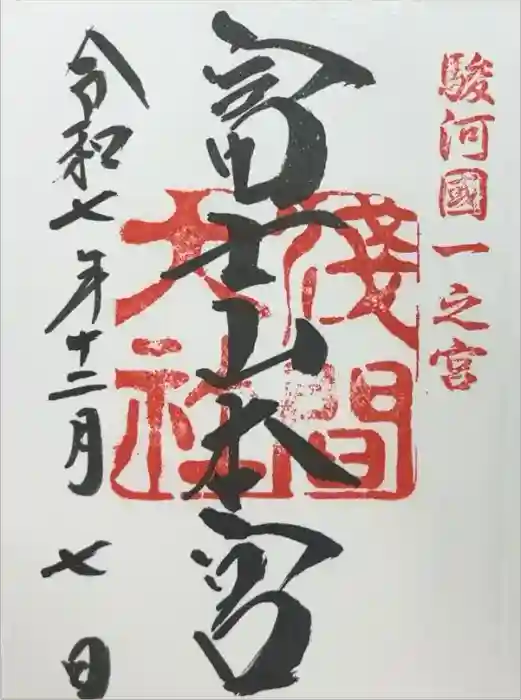 駿河國一之宮
富士山本宮
淺間
大社
令和七年十二月七日